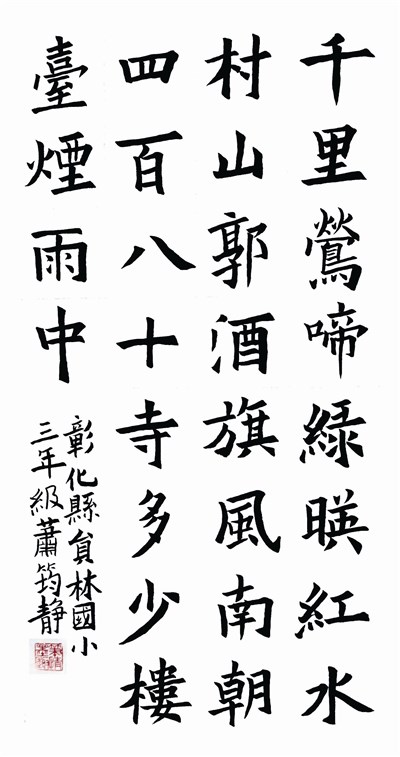 千里鶯啼綠暎紅水
村山郭酒旗風南朝
四百八十寺多少樓
臺煙雨中
彰化縣員林國小
三年級蕭筠靜